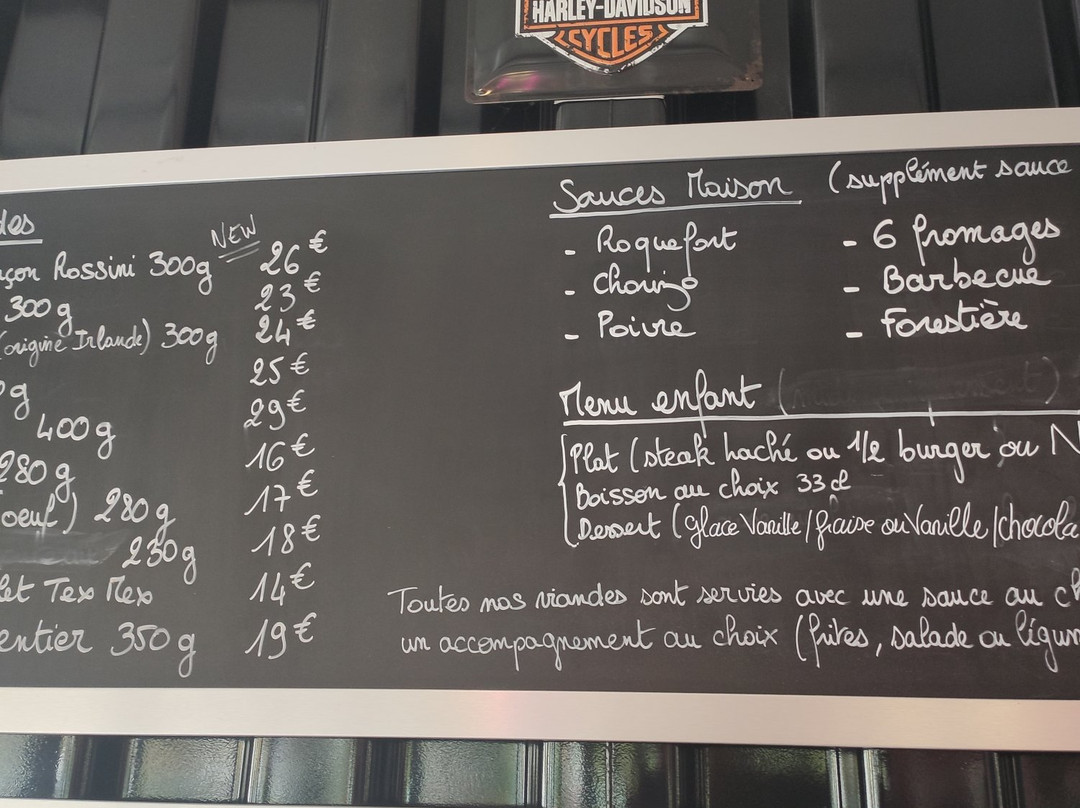 HARLEY-DAVIDSON
CYCLES
des
NEW
çon Rossini 300g 26€
300g 23€
(origine Irlande) 300g 24€
g 25€
400g 29€
280g 16€
oeuf) 280g 17€
230g 18€
let Tex Mex 14€
entier 350g 19€
Sauces Maison (supplément sauce
- Roquefort - 6 fromages
- Chorizo - Barbecue
- Poivre - Forestière
Menu enfant (
Plat (steak haché ou 1/2 burger ou N
Boisson au choix 33cl
Dessert (glace Vanille/fraise ou Vanille/chocola
Toutes nos viandes sont servies avec une sauce au ch
un accompagnement au choix (frites, salade ou légum